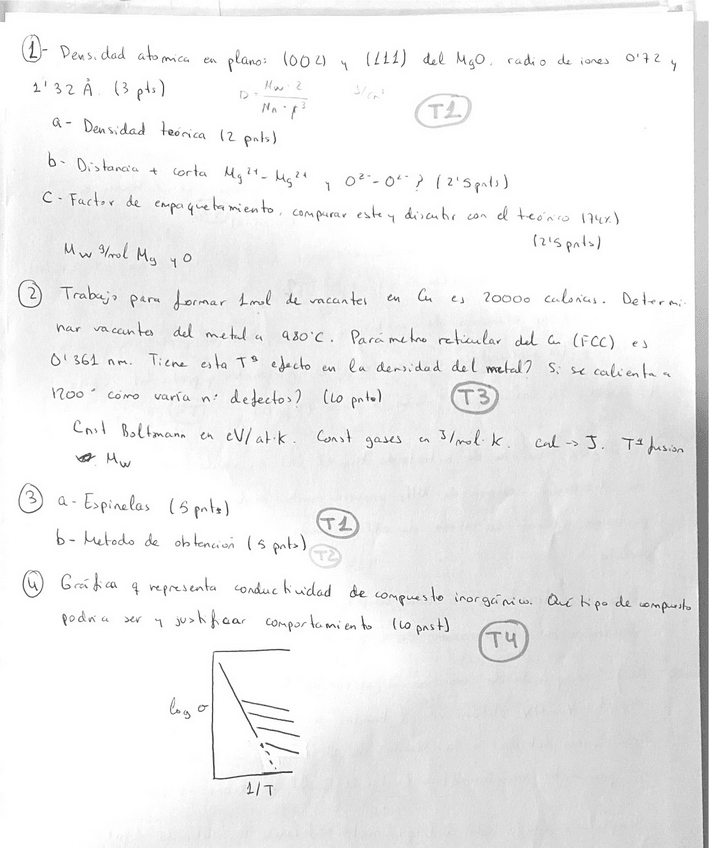 1- Densidad atomica en plano: (002) y (111) del MgO. radio de iones 0'72 y
1'32 Å. (3 pts) D = Mw · 2 / Nn · p³
T1
a- Densidad teórica (2 pnts)
b- Distancia + corta Mg²⁺-Mg²⁺ y O²⁻-O²⁻? (2'5 pnts)
C- Factor de empaquetamiento, comparar este y discutir con el teórico (74%)
(2'5 pnts)
Mw g/mol Mg y O
2 Trabajo para formar 1mol de vacantes en Cu es 20000 calorías. Determi-
nar vacantes del metal a 980°C. Parámetro reticular del Cu (FCC) es
0'361 nm. Tiene esta Tª efecto en la densidad del metal? Si se calienta a
1200° cómo varía nº defectos? (10 pnts) T3
Cnst Boltzmann en eV/at·K. Const gases en J/mol·K. cal → J. Tª fusion
Mw
3 a- Espinelas (5 pnts) T1
b- Metodo de obtención (5 pnts) T2
4 Gráfica q representa conductividad de compuesto inorgánico. Qué tipo de compuesto
podría ser y justificar comportamiento (10 pnst) T4
log σ
1/T